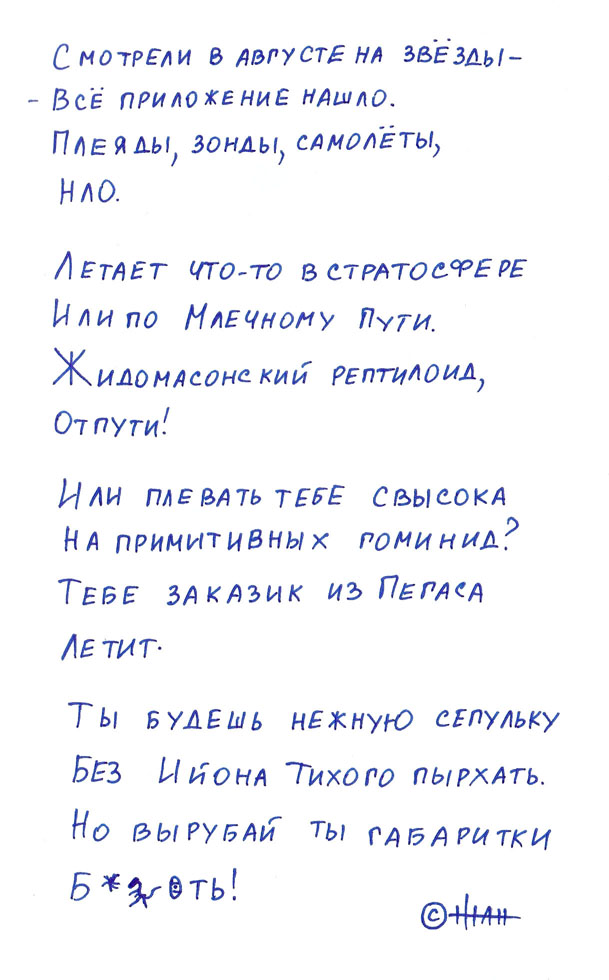 Смотрели в августе на звёзды –
– Всё приложение нашло.
Плеяды, зонды, самолёты,
НЛО.
Летает что-то в стратосфере
Или по Млечному Пути.
Жидомасонский рептилоид,
Отпути!
Или плевать тебе свысока
На примитивных гоминид?
Тебе заказик из Пегаса
Летит.
Ты будешь нежную сепульку
Без Ййона Тихого пырхать.
Но вырубай ты габаритки
Б*
©